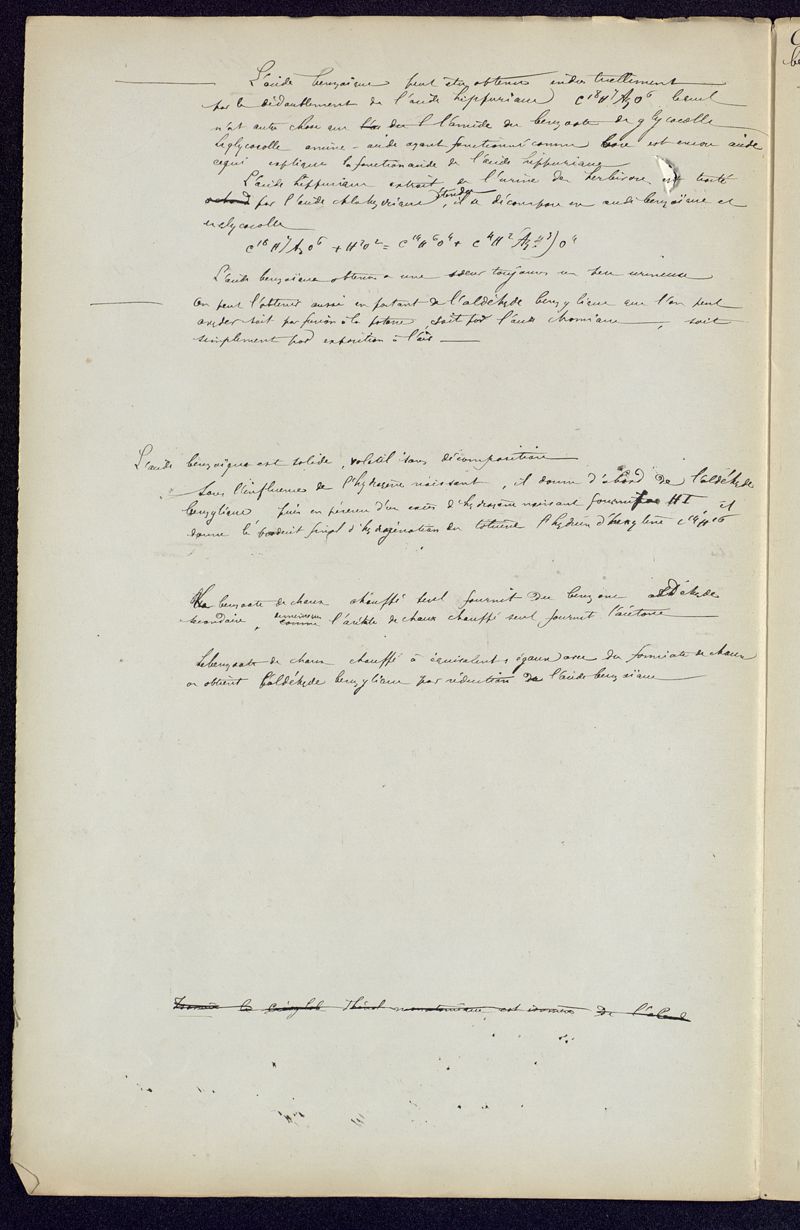 L'acide benzoïque peut être obtenu industriellement
par le dédoublement de l'acide hippurique C¹⁸H⁹AzO⁶ lequel
n'est autre chose que l'amide du benzoate de glycocolle
Le glycocolle amine-acide ayant fonctionné comme base est encore acide
ce qui explique la fonction acide de l'acide hippurique
L'acide hippurique extrait de l'urine des herbivores est traité
par l'acide chlorhydrique étendu, il se décompose en acide benzoïque et
en glycocolle
C¹⁸H⁹AzO⁶ + H²O² = C¹⁴H⁶O⁴ + C⁴H²(AzH³)O⁴
L'acide benzoïque obtenu a une odeur toujours un peu urineuse
On peut l'obtenir aussi en partant de l'aldéhyde benzylique que l'on peut
oxyder soit par fusion à la potasse, soit par l'acide chromique, soit
simplement par exposition à l'air
L'acide benzoïque est solide, volatil sans décomposition
Sous l'influence de l'hydrogène naissant, il donne d'abord de l'aldéhyde
benzylique, puis en présence d'un excès d'hydrogène naissant fourni par HI il
donne le produit final d'hydrogénation du toluène l'hydrure d'heptylène C¹⁴H¹⁶
Le benzoate de chaux chauffé seul fournit du benzone aldéhyde
secondaire, de même que comme l'acétate de chaux chauffé seul fournit l'acétone
Le benzoate de chaux chauffé à équivalents égaux avec du formiate de chaux
on obtient l'aldéhyde benzylique par réduction de l'acide benzoïque
le phénol monatomique, est isomère de l'alcool